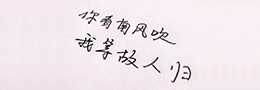 你看南风吹
我等故人归